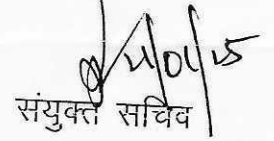 21/01/15
संयुक्त सचिव